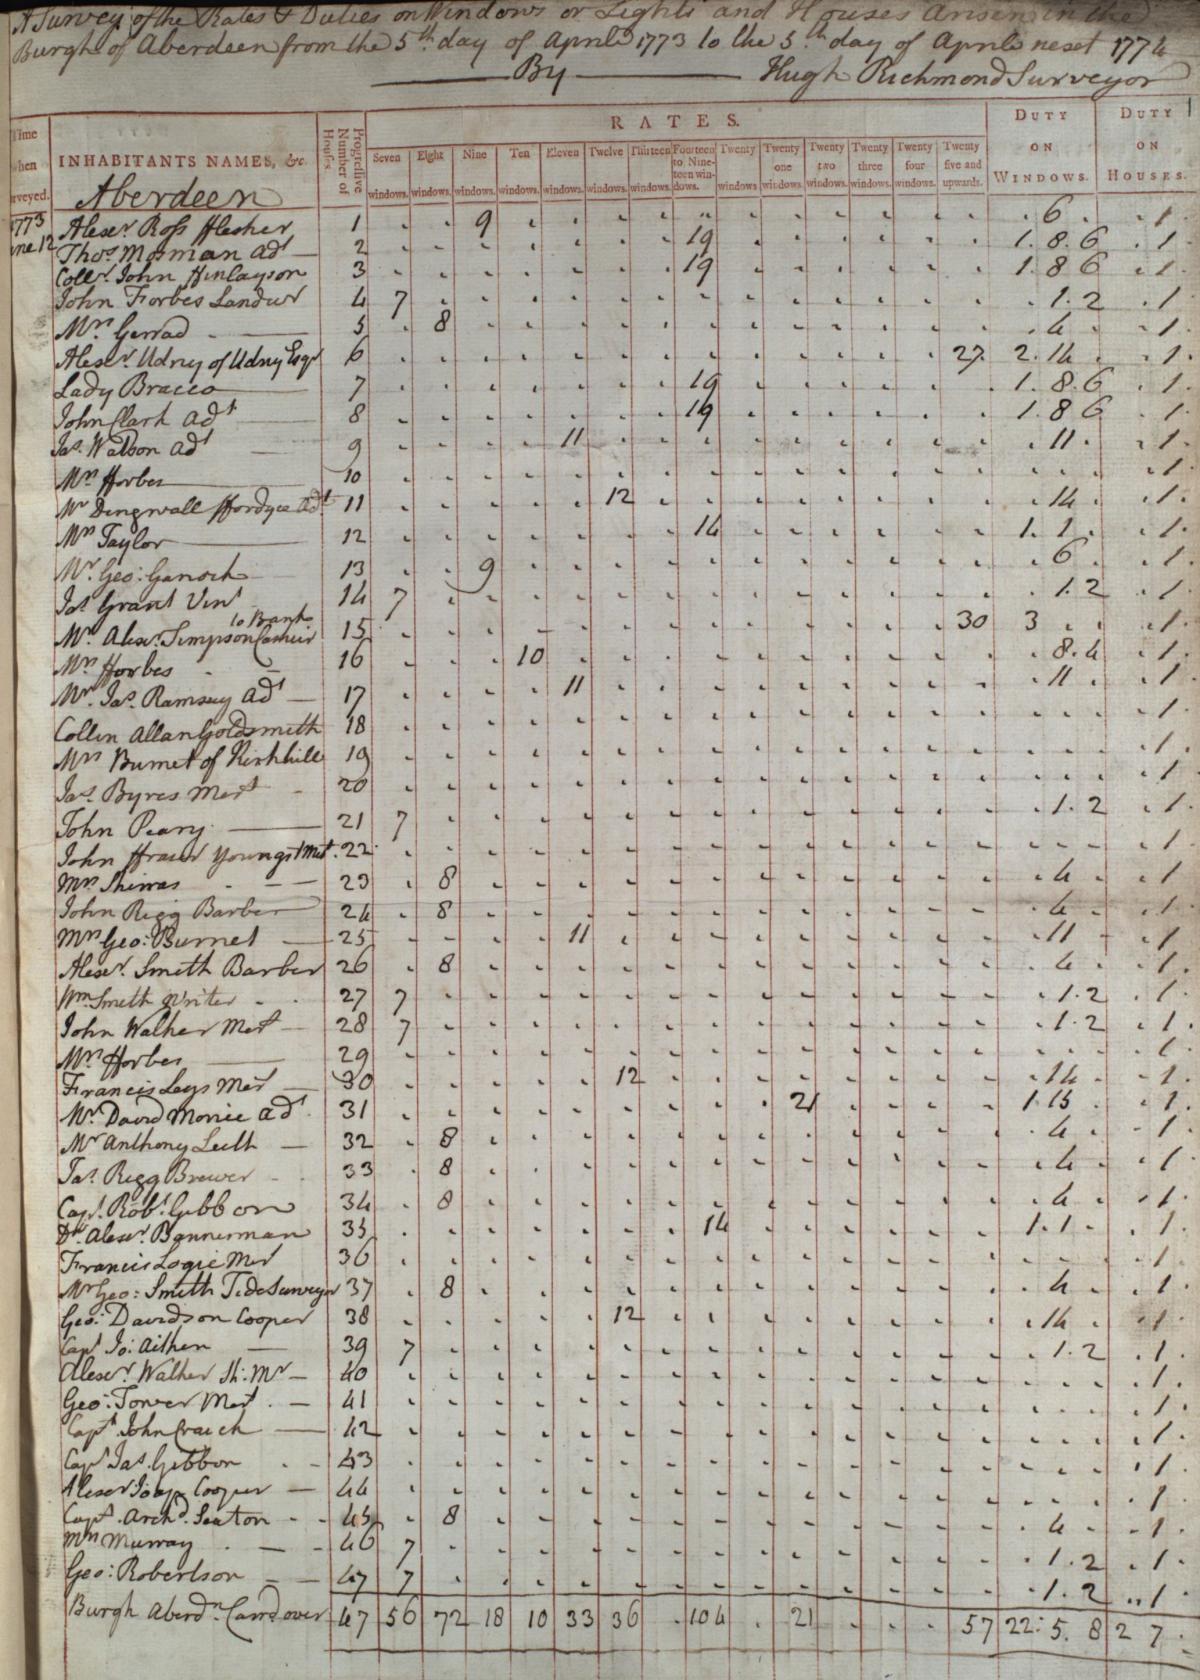 A Survey of the Rates & Duties on Windows or Lights and Houses Arisen in the
Burgh of Aberdeen from the 5th day of Aprile 1773 to the 5th day of Aprile next 1774
By Hugh Richmond Surveyor
Time when rveyed. INHABITANTS NAMES, &c. Progressive Number of Houses RATES. DUTY ON WINDOWS. DUTY ON HOUSES.
Seven windows. Eight windows. Nine windows. Ten windows. Eleven windows. Twelve windows. Thirteen windows. Fourteen to Nineteen windows. Twenty windows. Twenty one windows. Twenty two windows. Twenty three windows. Twenty four windows. Twenty five and upwards.
Aberdeen
1773 Alexr. Ross fflesher 1 9 6 1
une 12 Thos. Mosman adt 2 19 1. 8. 6 1
Collr. John ffinlayson 3 19 1 8 6 1
John Forbes Landwr 4 7 1. 2 1
Mrs Gerrad 5 8 4 1
Alexr. Udny of Udny Esqr 6 27 2. 14 1
Lady Bracco 7 19 1. 8. 6 1
John Clark adt 8 19 1. 8 6 1
Jas. Watson adt 9 11 11 1
Mrs fforbes 10 1
Mr Dingwall ffordyce adt 11 12 14 1
Mrs Taylor 12 14 1. 1 1
Mr. Geo: Garioch 13 9 6 1
Jas Grant Vint 14 7 1. 2 1
to Bank
Mr. Alexr. Simpson Cashier 15 30 3 1
Mrs fforbes 16 10 8. 4 1
Mr. Jas. Ramsay adt 17 11 11 1
Collin Allan Goldsmith 18 1
Mrs Burnet of Kirkhill 19 1
Jas. Byres Mert 20 1
John Peary 21 7 1. 2 1
John ffraser Youngst Mert. 22 1
Mrs Shirras 23 8 4 1
John Rigg Barber 24 8 4 1
Mrs Geo: Burnet 25 11 11 1
Alexr. Smith Barber 26 8 4 1
Wm. Smith Writer 27 7 1. 2 1
John Walker Mert 28 7 1. 2 1
Mrs fforbes 29 1
Francis Leys Mert 30 12 14 1
Mr. David Morice adt 31 21 1. 15 1
Mr Anthony Leith 32 8 4 1
Jas. Rigg Brewer 33 8 4 1
Capt. Robt. Gibbon 34 8 4 1
Dr. Alexr. Bannerman 35 14 1. 1 1
Francis Logie Mert 36 1
Mr Geo: Smith Tidesurveyr 37 8 4 1
Geo: Davidson Cooper 38 12 14 1
Capt Jo: Aitken 39 7 1. 2 1
Alexr. Walker Sh: Mr 40 1
Geo: Tower Mert. 41 1
Capt John Craich 42 1
Capt Jas. Gibbon 43 1
Alexr Cooper 44 1
Capt. Archd. Seaton 45 8 4 1
Mrs Murray 46 7 1. 2 1
Geo: Robertson 47 7 1. 2 1
Burgh Aberdn. Carried over 47 56 72 18 10 33 36 104 21 57 22: 5. 8 2 7